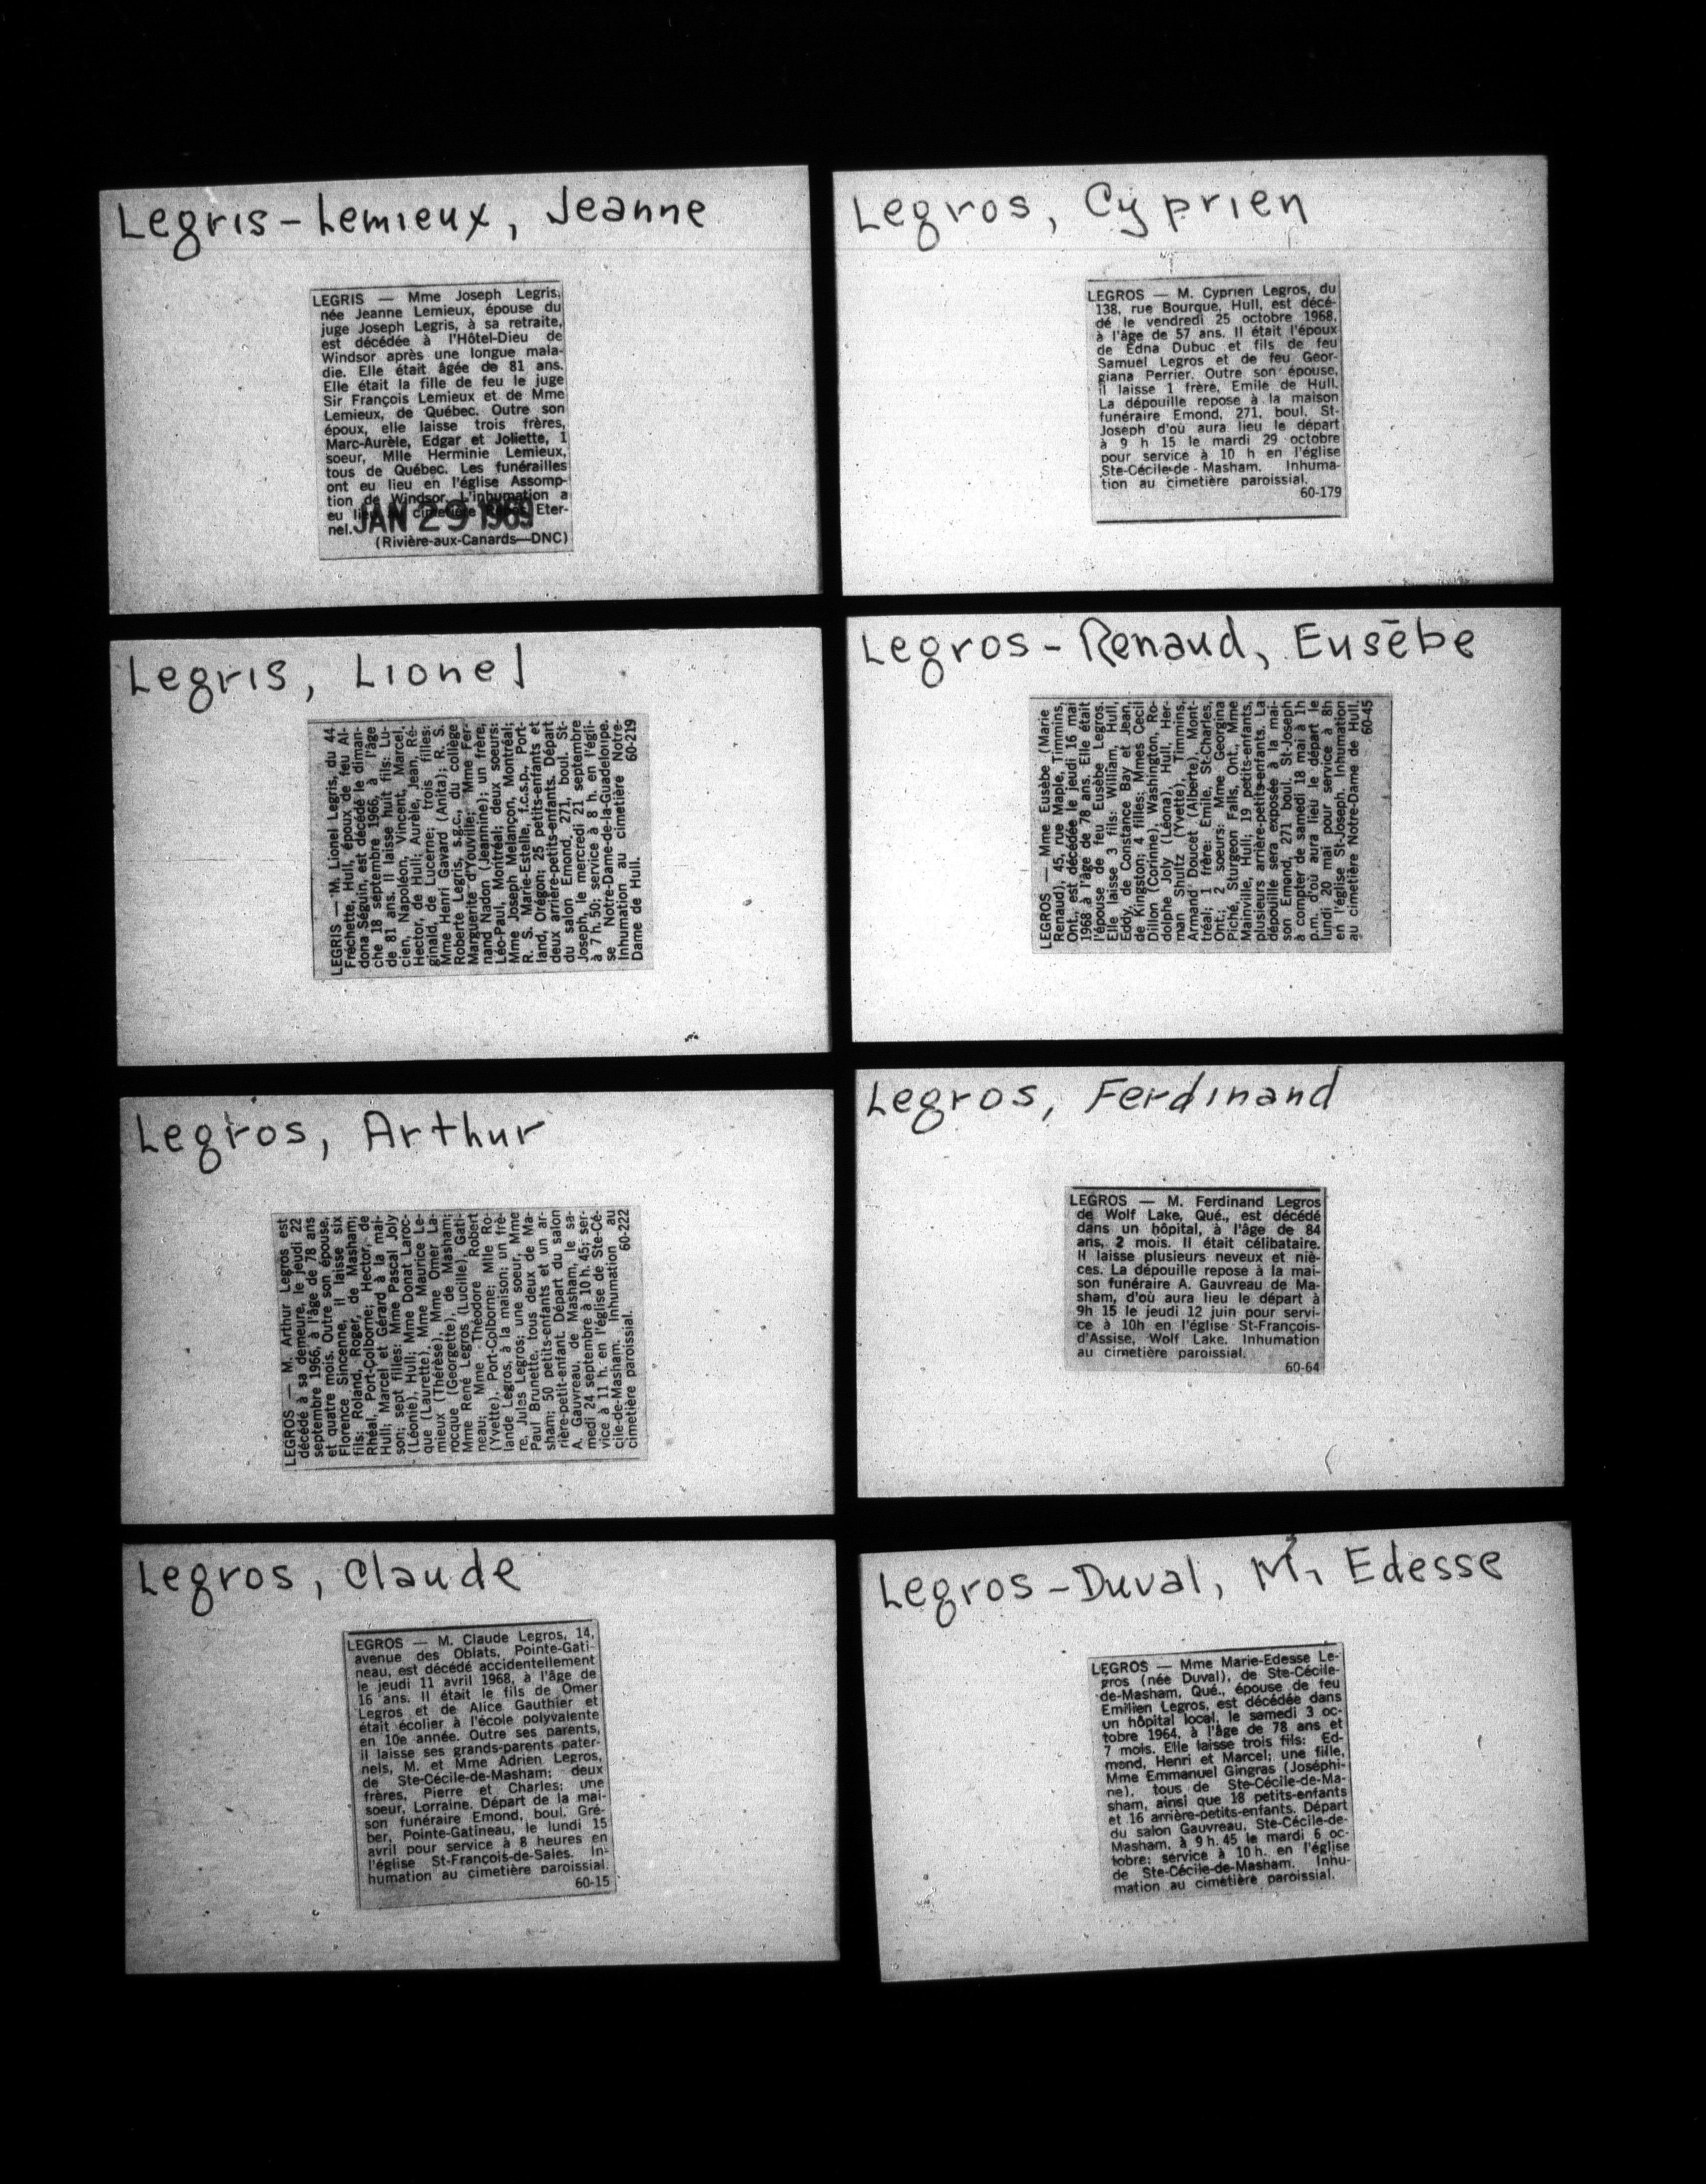 Legris-Lemieux, Jeanne
LEGRIS — Mme Joseph Legris,
née Jeanne Lemieux, épouse du
juge Joseph Legris, à sa retraite,
est décédée à l'Hôtel-Dieu de
Windsor après une longue mala-
die. Elle était âgée de 81 ans.
Elle était la fille de feu le juge
Sir François Lemieux et de Mme
Lemieux, de Québec. Outre son
époux, elle laisse trois frères,
Marc-Aurèle, Edgar et Joliette, 1
soeur, Mlle Herminie Lemieux,
tous de Québec. Les funérailles
ont eu lieu en l'église Assomp-
tion de Windsor. L'inhumation a
eu cimetière Eter-
nel.
JAN 29 1969
(Rivière-aux-Canards—DNC)
Legris, Lionel
LEGRIS — M. Lionel Legris, du 44
Fréchette, Hull, époux de feu Al-
dona Séguin, est décédé le diman-
che 18 septembre 1966, à l'âge
de 81 ans. Il laisse huit fils: Lu-
cien, Napoléon, Vincent, Marcel,
Hector, de Hull; Aurèle, Jean, Ré-
ginald, de Lucerne; trois filles:
Mme Henri Gavard (Anita); R. S.
Roberte Legris, s.g.c., du collège
Marguerite d'Youville; Mme Fer-
nand Nadon (Jeannine); un frère,
Léo-Paul, Montréal; deux soeurs:
Mme Joseph Melançon, Montréal;
R. S. Marie-Estelle, f.c.s.p., Port-
land, Orégon; 25 petits-enfants et
deux arrière-petits-enfants. Départ
du salon Emond, 271, boul. St-
Joseph, le mercredi 21 septembre
à 7 h. 50; service à 8 h. en l'égli-
se Notre-Dame-de-la-Guadeloupe.
Inhumation au cimetière Notre-
Dame de Hull. 60-219
Legros, Arthur
LEGROS — M. Arthur Legros est
décédé à sa demeure, le jeudi 22
septembre 1966, à l'âge de 78 ans
et quatre mois. Outre son épouse,
Florence Sincenne, il laisse six
fils: Roland, Roger, de Masham;
Rhéal, Port-Colborne; Hector, de
Hull; Marcel et Gérard à la mai-
son; sept filles: Mme Pascal Joly
(Léonie), Hull; Mme Donat Laroc-
que (Laurette), Mme Maurice Le-
mieux (Thérèse), Mme Omer La-
rocque (Georgette), de Masham;
Mme René Legros (Lucille), Gati-
neau; Mme Théodore Robert
(Yvette), Port-Colborne; Mlle Ro-
lande Legros, à la maison; un frè-
re, Jules Legros; une soeur, Mme
Paul Brunette, tous deux de Ma-
sham; 50 petits-enfants et un ar-
rière-petit-enfant. Départ du salon
A. Gauvreau, de Masham, le sa-
medi 24 septembre à 10 h. 45; ser-
vice à 11 h. en l'église de Ste-Cé-
cile-de-Masham. Inhumation au
cimetière paroissial. 60-222
Legros, Claude
LEGROS — M. Claude Legros, 14,
avenue des Oblats, Pointe-Gati-
neau, est décédé accidentellement
le jeudi 11 avril 1968, à l'âge de
16 ans. Il était le fils de Omer
Legros et de Alice Gauthier et
était écolier à l'école polyvalente
en 10e année. Outre ses parents,
il laisse ses grands-parents pater-
nels, M. et Mme Adrien Legros,
de Ste-Cécile-de-Masham; deux
frères, Pierre et Charles; une
soeur, Lorraine. Départ de la mai-
son funéraire Emond, boul. Gré-
ber, Pointe-Gatineau, le lundi 15
avril pour service à 8 heures en
l'église St-François-de-Sales. In-
humation au cimetière paroissial.
60-15
Legros, Cyprien
LEGROS — M. Cyprien Legros, du
138, rue Bourque, Hull, est décé-
dé le vendredi 25 octobre 1968,
à l'âge de 57 ans. Il était l'époux
de Edna Dubuc et fils de feu
Samuel Legros et de feu Geor-
giana Perrier. Outre son épouse,
il laisse 1 frère, Emile de Hull.
La dépouille repose à la maison
funéraire Emond, 271, boul. St-
Joseph d'où aura lieu le départ
à 9 h 15 le mardi 29 octobre
pour service à 10 h en l'église
Ste-Cécile-de-Masham. Inhuma-
tion au cimetière paroissial.
60-179
Legros-Renaud, Eusèbe
LEGROS — Mme Eusèbe (Marie
Renaud), 45, rue Maple, Timmins,
Ont., est décédée le jeudi 16 mai
1968 à l'âge de 78 ans. Elle était
l'épouse de feu Eusèbe Legros.
Elle laisse 3 fils: William, Hull,
Eddy, de Constance Bay et Jean,
de Kingston; 4 filles: Mmes Cecil
Dillon (Corinne), Washington, Ro-
dolphe Joly (Léona), Hull, Her-
man Shultz (Yvette), Timmins,
Armand Doucet (Alberte), Mont-
tréal; 1 frère: Emile, St-Charles,
Ont.; 2 soeurs: Mme Georgina
Piché, Sturgeon Falls, Ont., Mme
Mainville, Hull; 19 petits-enfants,
plusieurs arrière-petits-enfants. La
dépouille sera exposée à la mai-
son Emond, 271 boul. St-Joseph
à compter de samedi 18 mai à 1h
p.m. d'où aura lieu le départ le
lundi 20 mai pour service à 8h
en l'église St-Joseph. Inhumation
au cimetière Notre-Dame de Hull.
60-45
Legros, Ferdinand
LEGROS — M. Ferdinand Legros
de Wolf Lake, Qué., est décédé
dans un hôpital, à l'âge de 84
ans, 2 mois. Il était célibataire.
Il laisse plusieurs neveux et niè-
ces. La dépouille repose à la mai-
son funéraire A. Gauvreau de Ma-
sham, d'où aura lieu le départ à
9h 15 le jeudi 12 juin pour servi-
ce à 10h en l'église St-François-
d'Assise, Wolf Lake. Inhumation
au cimetière paroissial.
60-64
Legros-Duval, M, Edesse
LEGROS — Mme Marie-Edesse Le-
gros (née Duval), de Ste-Cécile-
de-Masham, Qué., épouse de feu
Emilien Legros, est décédée dans
un hôpital local, le samedi 3 oc-
tobre 1964, à l'âge de 78 ans et
7 mois. Elle laisse trois fils: Ed-
mond, Henri et Marcel; une fille,
Mme Emmanuel Gingras (Joséphi-
ne), tous de Ste-Cécile-de-Ma-
sham, ainsi que 18 petits-enfants
et 16 arrière-petits-enfants. Départ
du salon Gauvreau, Ste-Cécile-de-
Masham, à 9 h. 45 le mardi 6 oc-
tobre; service à 10 h. en l'église
de Ste-Cécile-de-Masham. Inhu-
mation au cimetière paroissial.